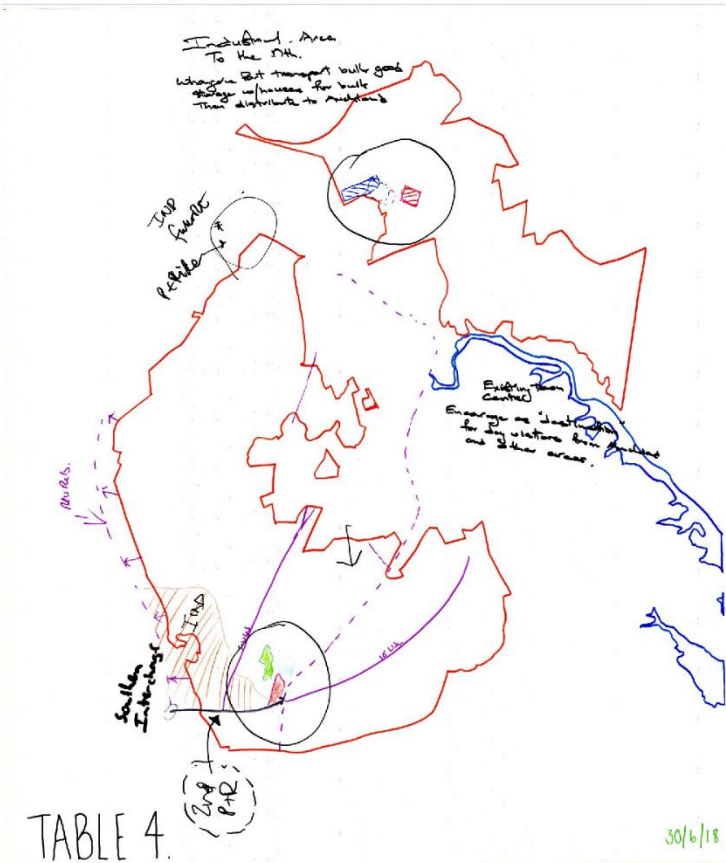 Industrial Area
To the Nth.
Whangarei Port transport bulk goods
storage w/houses for bulk
Then distribute to Auckland
IND
future
P+Ride
Existing town
center
Encourage as "destination"
for day visitors from Auckland
and other areas.
IND
Southern
Interchange
2nd
P+R
TABLE 4.
30/6/18